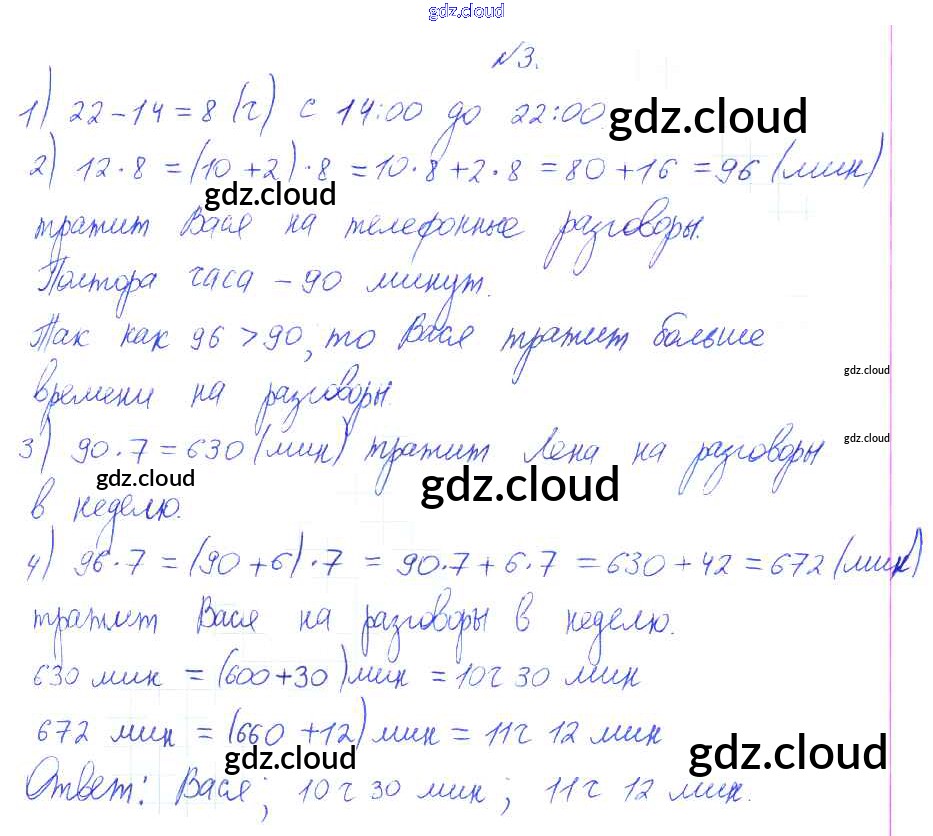 gdz.cloud
№3.
1) 22-14=8 (ч) с 14:00 до 22:00. gdz.cloud
2) 12·8=(10+2)·8=10·8+2·8=80+16=96 (мин)
gdz.cloud
тратит Вася на телефонные разговоры.
Полтора часа - 90 минут.
Так как 96>90, то Вася тратит больше
gdz.cloud
времени на разговоры.
3) 90·7=630 (мин) тратит Лена на разговоры gdz.cloud
gdz.cloud gdz.cloud
в неделю.
4) 96·7=(90+6)·7=90·7+6·7=630+42=672 (мин)
тратит Вася на разговоры в неделю.
630 мин = (600+30) мин = 10 ч 30 мин
672 мин = (660+12) мин = 11 ч 12 мин
gdz.cloud gdz.cloud
Ответ: Вася; 10 ч 30 мин; 11 ч 12 мин.